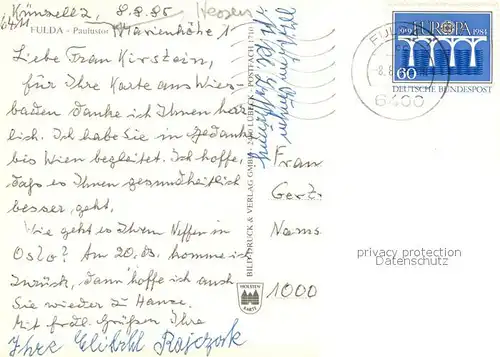 Künzell 2, 8.8.85 Hessen
6411
FULDA - Paulustor Marienhöhe 1
Liebe Frau Kirstein,
für Ihre Karte aus Wies-
baden danke ich Ihnen herz
lich. Ich habe Sie in Gedanken
bis Wien begleitet. Ich hoffe,
daß es Ihnen gesundheitlich
besser geht.
Wie geht es Ihrem Neffen in
Oslo? Am 20. 8. komme ich
zurück, dann hoffe ich auch
Sie wieder zu Hause.
Mit frdl. Grüßen Ihre
Ihre Rajczok
BILD DRUCK & VERLAG GMBH · 2400 LÜBECK · POSTFACH 2710
HOLSTEN
KARTE
Frau
Gert.
Nams
1000
1959 EUROPA 1984
60
DEUTSCHE BUNDESPOST
FU
-8.8
6400
privacy protection
Datenschutz